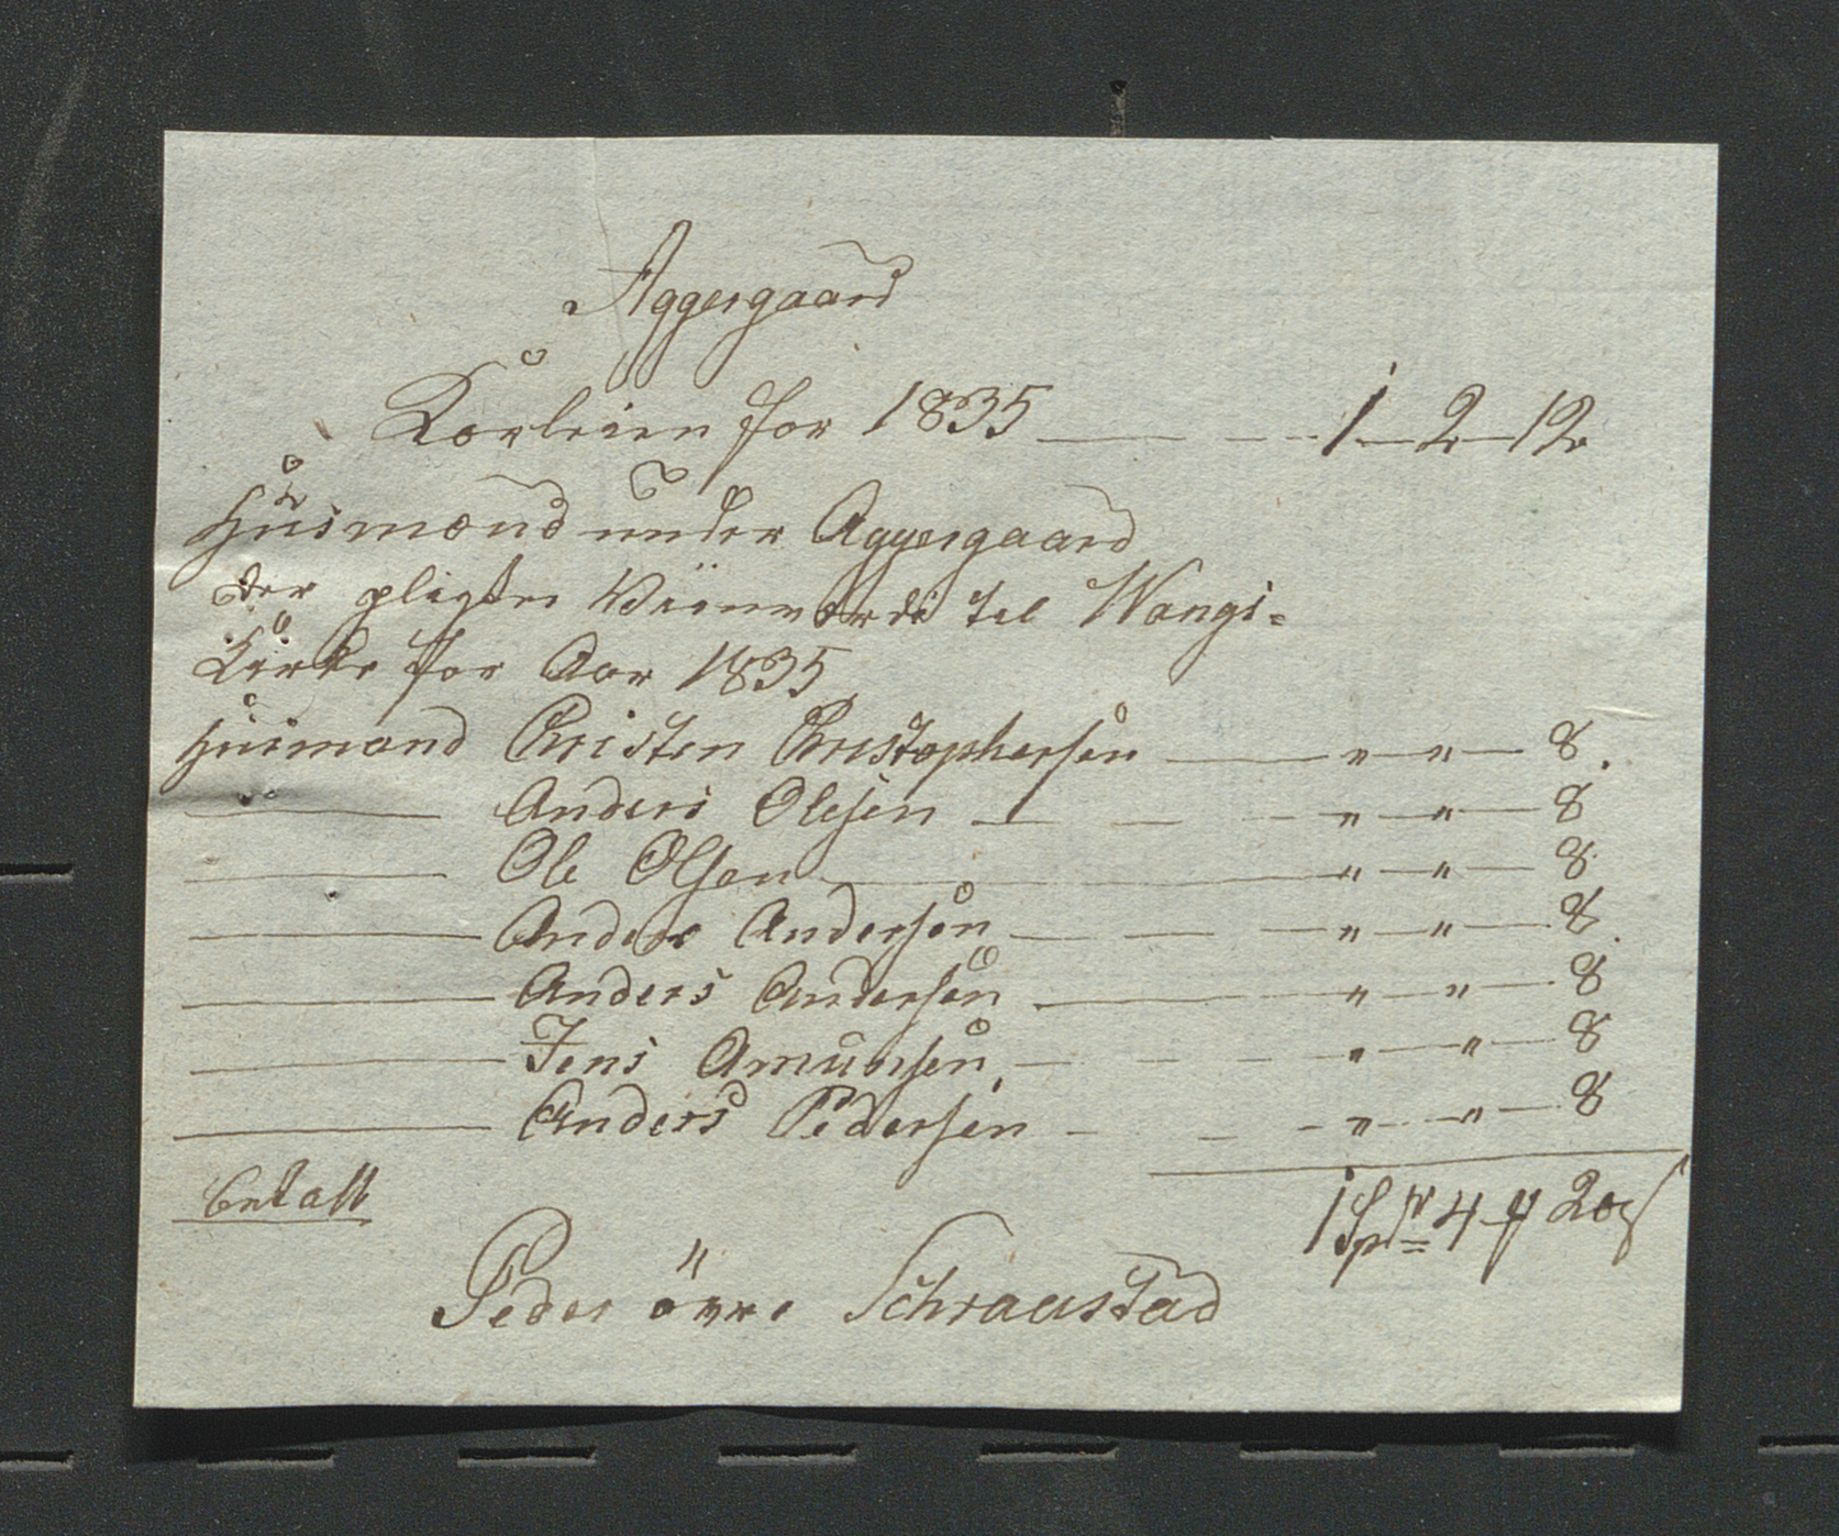 Aggergaard
Korleien for 1835 — 1 — 2 — 12
Huusmænd under Aggergaard
der pligter Viinværdi til Wangs=
Kirke for Aar 1835
Huusmand Christen Christophersen — " — " — 8.
— Anders Olesen — " — " — 8
— Ole Olsen — " — " — 8
— Anders Andersen — " — " — 8
— Anders Andersen — " — " — 8
— Jens Amunsen, — " — " — 8
— Anders Pedersen — " — " — 8
betalt
1 Spd 4 # 20 s
Peder övre Schraastad